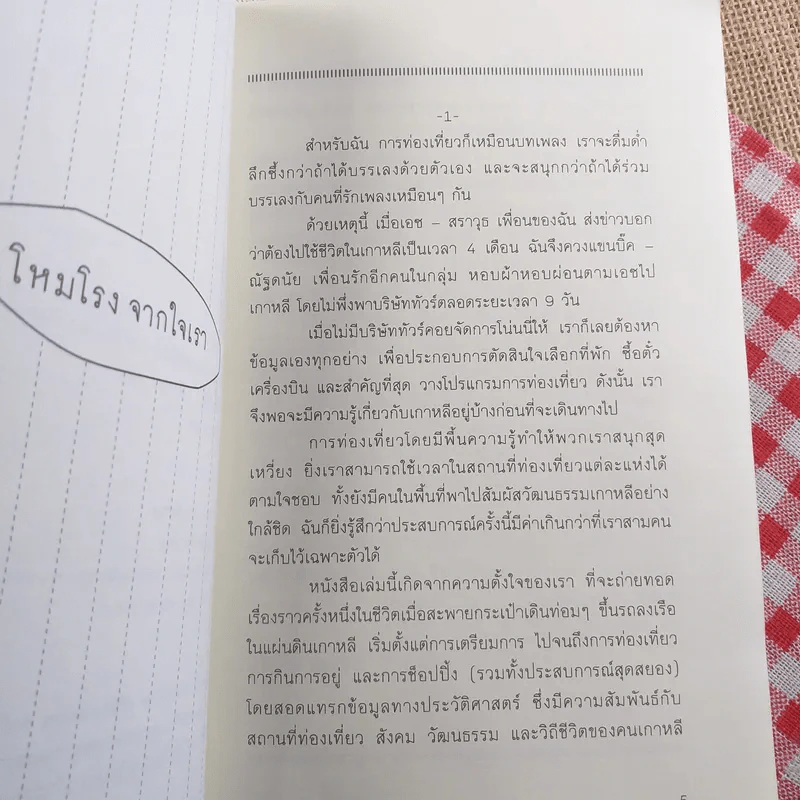 โหมโรง จากใจเรา
-1-
สำหรับฉัน การท่องเที่ยวก็เหมือนบทเพลง เราจะดื่มด่ำ
ลึกซึ้งกว่าถ้าได้บรรเลงด้วยตัวเอง และจะสนุกกว่าถ้าได้ร่วม
บรรเลงกับคนที่รักเพลงเหมือนๆ กัน
ด้วยเหตุนี้ เมื่อเอช – สราวุธ เพื่อนของฉัน ส่งข่าวบอก
ว่าต้องไปใช้ชีวิตในเกาหลีเป็นเวลา 4 เดือน ฉันจึงควงแขนบิ๊ค –
ณัฐดนัย เพื่อนรักอีกคนในกลุ่ม หอบผ้าหอบผ่อนตามเอชไป
เกาหลี โดยไม่พึ่งพาบริษัททัวร์ตลอดระยะเวลา 9 วัน
เมื่อไม่มีบริษัททัวร์คอยจัดการโน่นนี่ให้ เราก็เลยต้องหา
ข้อมูลเองทุกอย่าง เพื่อประกอบการตัดสินใจเลือกที่พัก ซื้อตั๋ว
เครื่องบิน และสำคัญที่สุด วางโปรแกรมการท่องเที่ยว ดังนั้น เรา
จึงพอจะมีความรู้เกี่ยวกับเกาหลีอยู่บ้างก่อนที่จะเดินทางไป
การท่องเที่ยวโดยมีพื้นความรู้ทำให้พวกเราสนุกสุด
เหวี่ยง ยิ่งเราสามารถใช้เวลาในสถานที่ท่องเที่ยวแต่ละแห่งได้
ตามใจชอบ ทั้งยังมีคนในพื้นที่พาไปสัมผัสวัฒนธรรมเกาหลีอย่าง
ใกล้ชิด ฉันก็ยิ่งรู้สึกว่าประสบการณ์ครั้งนี้มีค่าเกินกว่าที่เราสามคน
จะเก็บไว้เฉพาะตัวได้
หนังสือเล่มนี้เกิดจากความตั้งใจของเรา ที่จะถ่ายทอด
เรื่องราวครั้งหนึ่งในชีวิตเมื่อสะพายกระเป๋าเดินท่อมๆ ขึ้นรถลงเรือ
ในแผ่นดินเกาหลี เริ่มตั้งแต่การเตรียมการ ไปจนถึงการท่องเที่ยว
การกินการอยู่ และการช็อปปิ้ง (รวมทั้งประสบการณ์สุดสยอง)
โดยสอดแทรกข้อมูลทางประวัติศาสตร์ ซึ่งมีความสัมพันธ์กับ
สถานที่ท่องเที่ยว สังคม วัฒนธรรม และวิถีชีวิตของคนเกาหลี